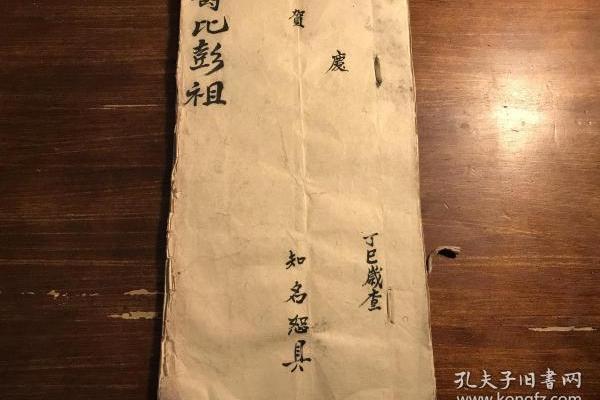 慶
丁巳歲查
賀
知名恕具
比彭祖
孔夫子旧书网
www.kongfz.com